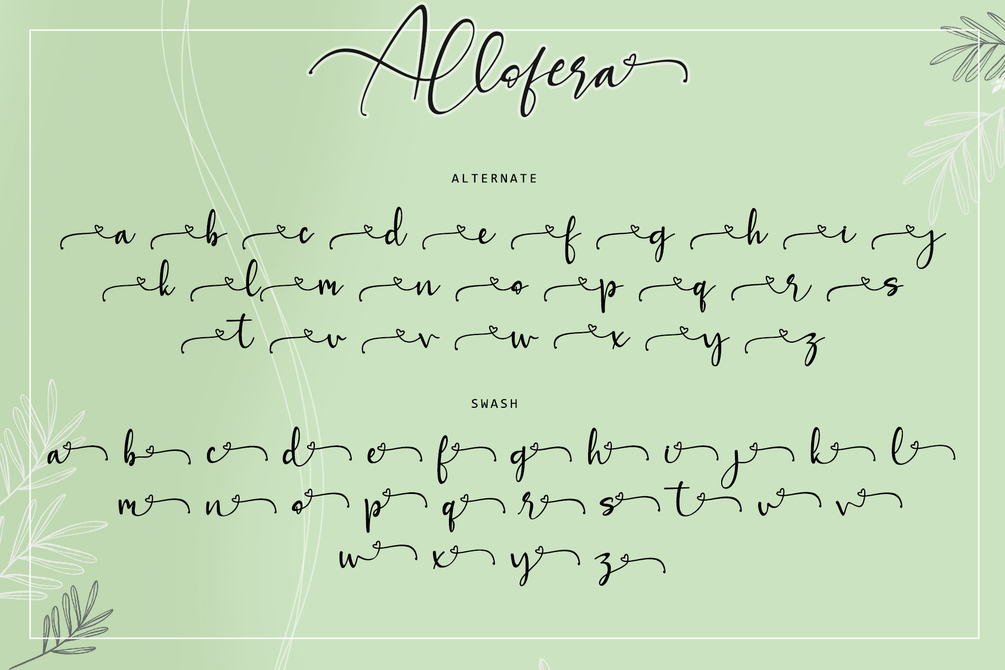 Allofera
ALTERNATE
a b c d e f g h i j
k l m n o p q r s
t u v w x y z
SWASH
a b c d e f g h i j k l
m n o p q r s t u v
w x y z